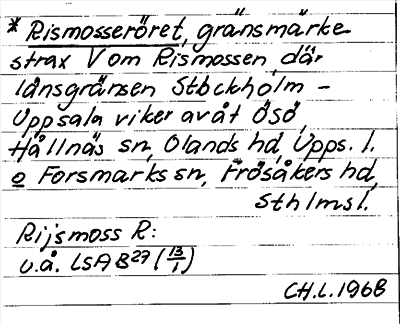 * Rismosseröret, gränsmärke
strax V om Rismossen, där
länsgränsen Stockholm -
Uppsala viker av åt ÖSÖ,
Hållnäs sn, Olands hd, Upps. l.
o Forsmarks sn, Frösåkers hd,
Sthlms l.
Rijsmoss R:
u.å. LSA B27 (13/1)
CH.L. 1968